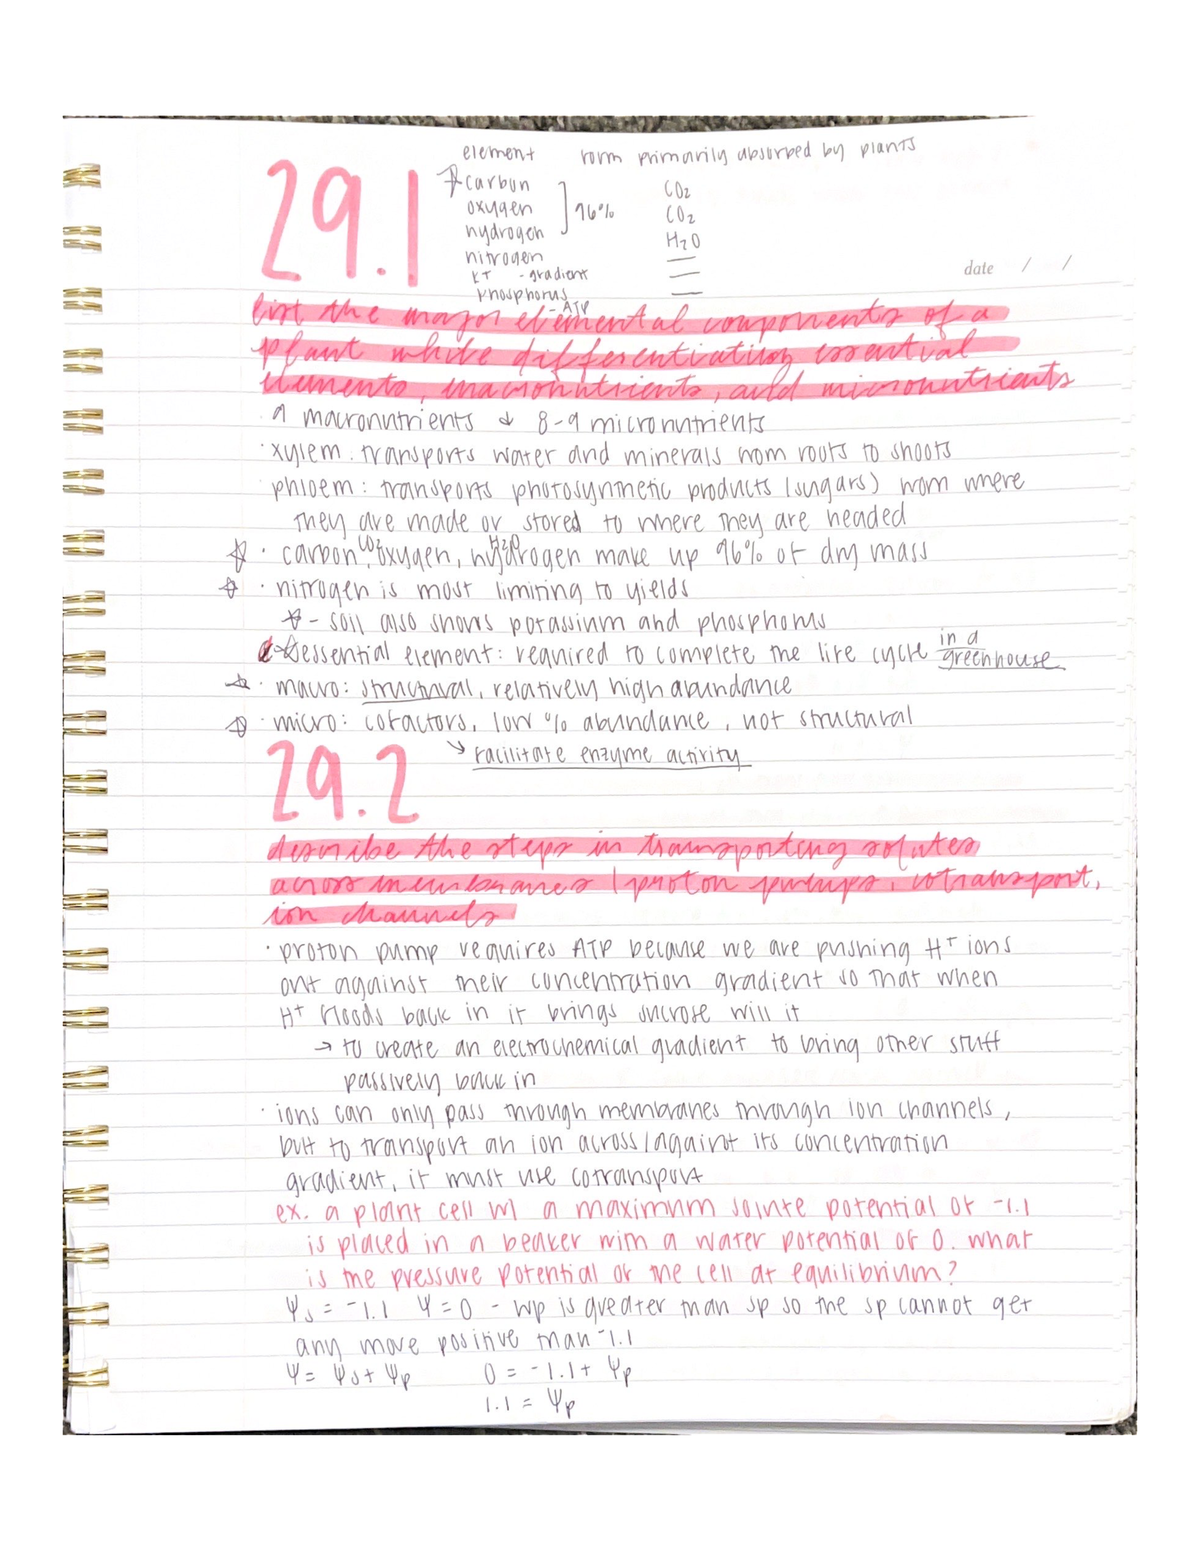 29.1
element form primarily absorbed by plants
carbon CO2
oxygen 96% CO2
hydrogen H2O
nitrogen —
K+ - gradient —
phosphorus —
- ATP
date / /
list the major elemental components of a
plant while differentiating essential
elements, macronutrients, and micronutrients
9 macronutrients & 8-9 micronutrients
· xylem: transports water and minerals from roots to shoots
phloem: transports photosynthetic products (sugars) from where
they are made or stored to where they are needed
CO2 H2O
☆ · carbon, oxygen, hydrogen make up 96% of dry mass
☆ · nitrogen is most limiting to yields
☆ - soil also shows potassium and phosphorus
☆ essential element: required to complete the life cycle in a
greenhouse
☆ · macro: structural, relatively high abundance
☆ · micro: cofactors, low % abundance, not structural
↘ facilitate enzyme activity
29.2
describe the steps in transporting solutes
across membranes (proton pumps, cotransport,
ion channels
· proton pump requires ATP because we are pushing H+ ions
out against their concentration gradient so that when
H+ floods back in it brings sucrose will it
→ to create an electrochemical gradient to bring other stuff
passively back in
· ions can only pass through membranes through ion channels,
but to transport an ion across/against its concentration
gradient, it must use cotransport
ex. a plant cell w/ a maximum solute potential of -1.1
is placed in a beaker with a water potential of 0. what
is the pressure potential of the cell at equilibrium?
Ψs = -1.1 Ψ = 0 - wp is greater than sp so the sp cannot get
any more positive than -1.1
Ψ = Ψs + Ψp 0 = -1.1 + Ψp
1.1 = Ψp